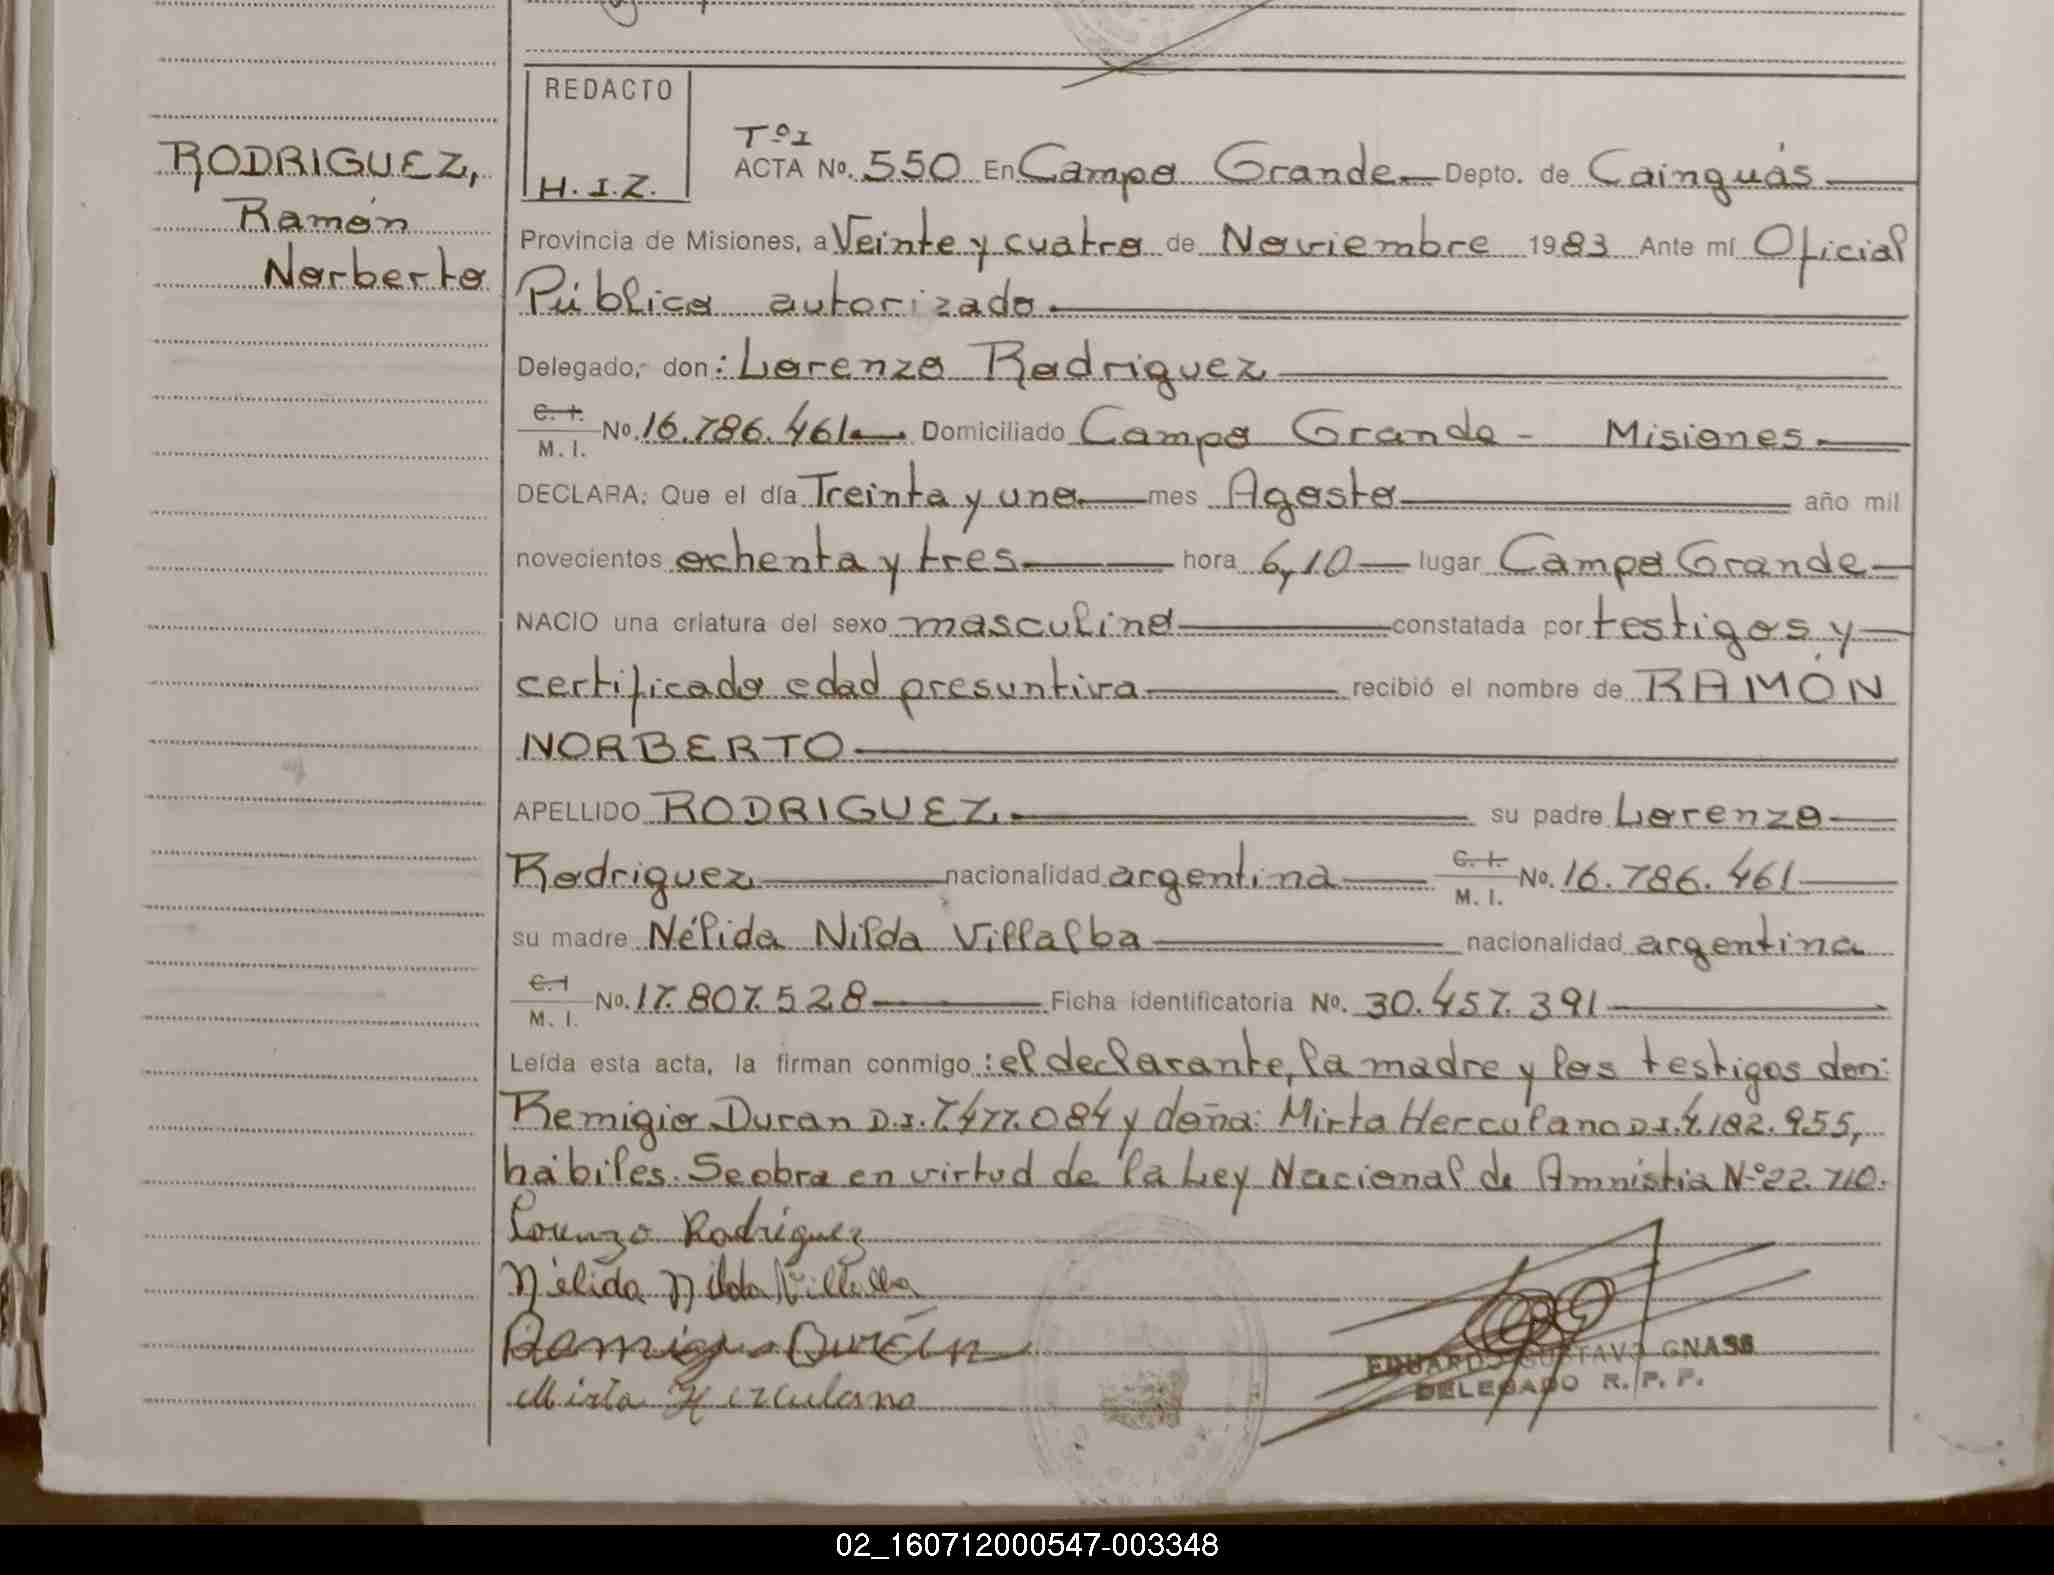 REDACTO
H. I. Z.
RODRIGUEZ,
Ramón
Norberto
Tº I
ACTA Nº. 550 En Campo Grande Depto. de Cainguás
Provincia de Misiones, a Veinte y cuatro de Noviembre 1983 Ante mí Oficial
Público autorizado
Delegado, don: Lorenzo Rodriguez
C. I. M. I. Nº. 16.786.461 Domiciliado Campo Grande - Misiones
DECLARA: Que el día Treinta y uno mes Agosto año mil
novecientos ochenta y tres hora 6,10 lugar Campo Grande
NACIO una criatura del sexo masculino constatada por testigos y
certificado edad presuntiva recibió el nombre de RAMÓN
NORBERTO
APELLIDO RODRIGUEZ su padre Lorenzo
Rodriguez nacionalidad argentina C. I. M. I. Nº. 16.786.461
su madre Nélida Nilda Villalba nacionalidad argentina
C. I M. I. Nº. 17.807.528 Ficha identificatoria Nº. 30.457.391
Leída esta acta, la firman conmigo: el declarante, la madre y los testigos don:
Remigio Duran D.I. 7.477.084 y doña: Mirta Herculano D.I. 4.182.955,
hábiles. Se obra en virtud de la Ley Nacional de Amnistia Nº 22.710.
Lorenzo Rodríguez
Nélida Nilda Villalba
Remigio Durán
Mirta Herculano
EDUARDO GUSTAVO GNASS
DELEGADO R. P. P.
02_160712000547-003348